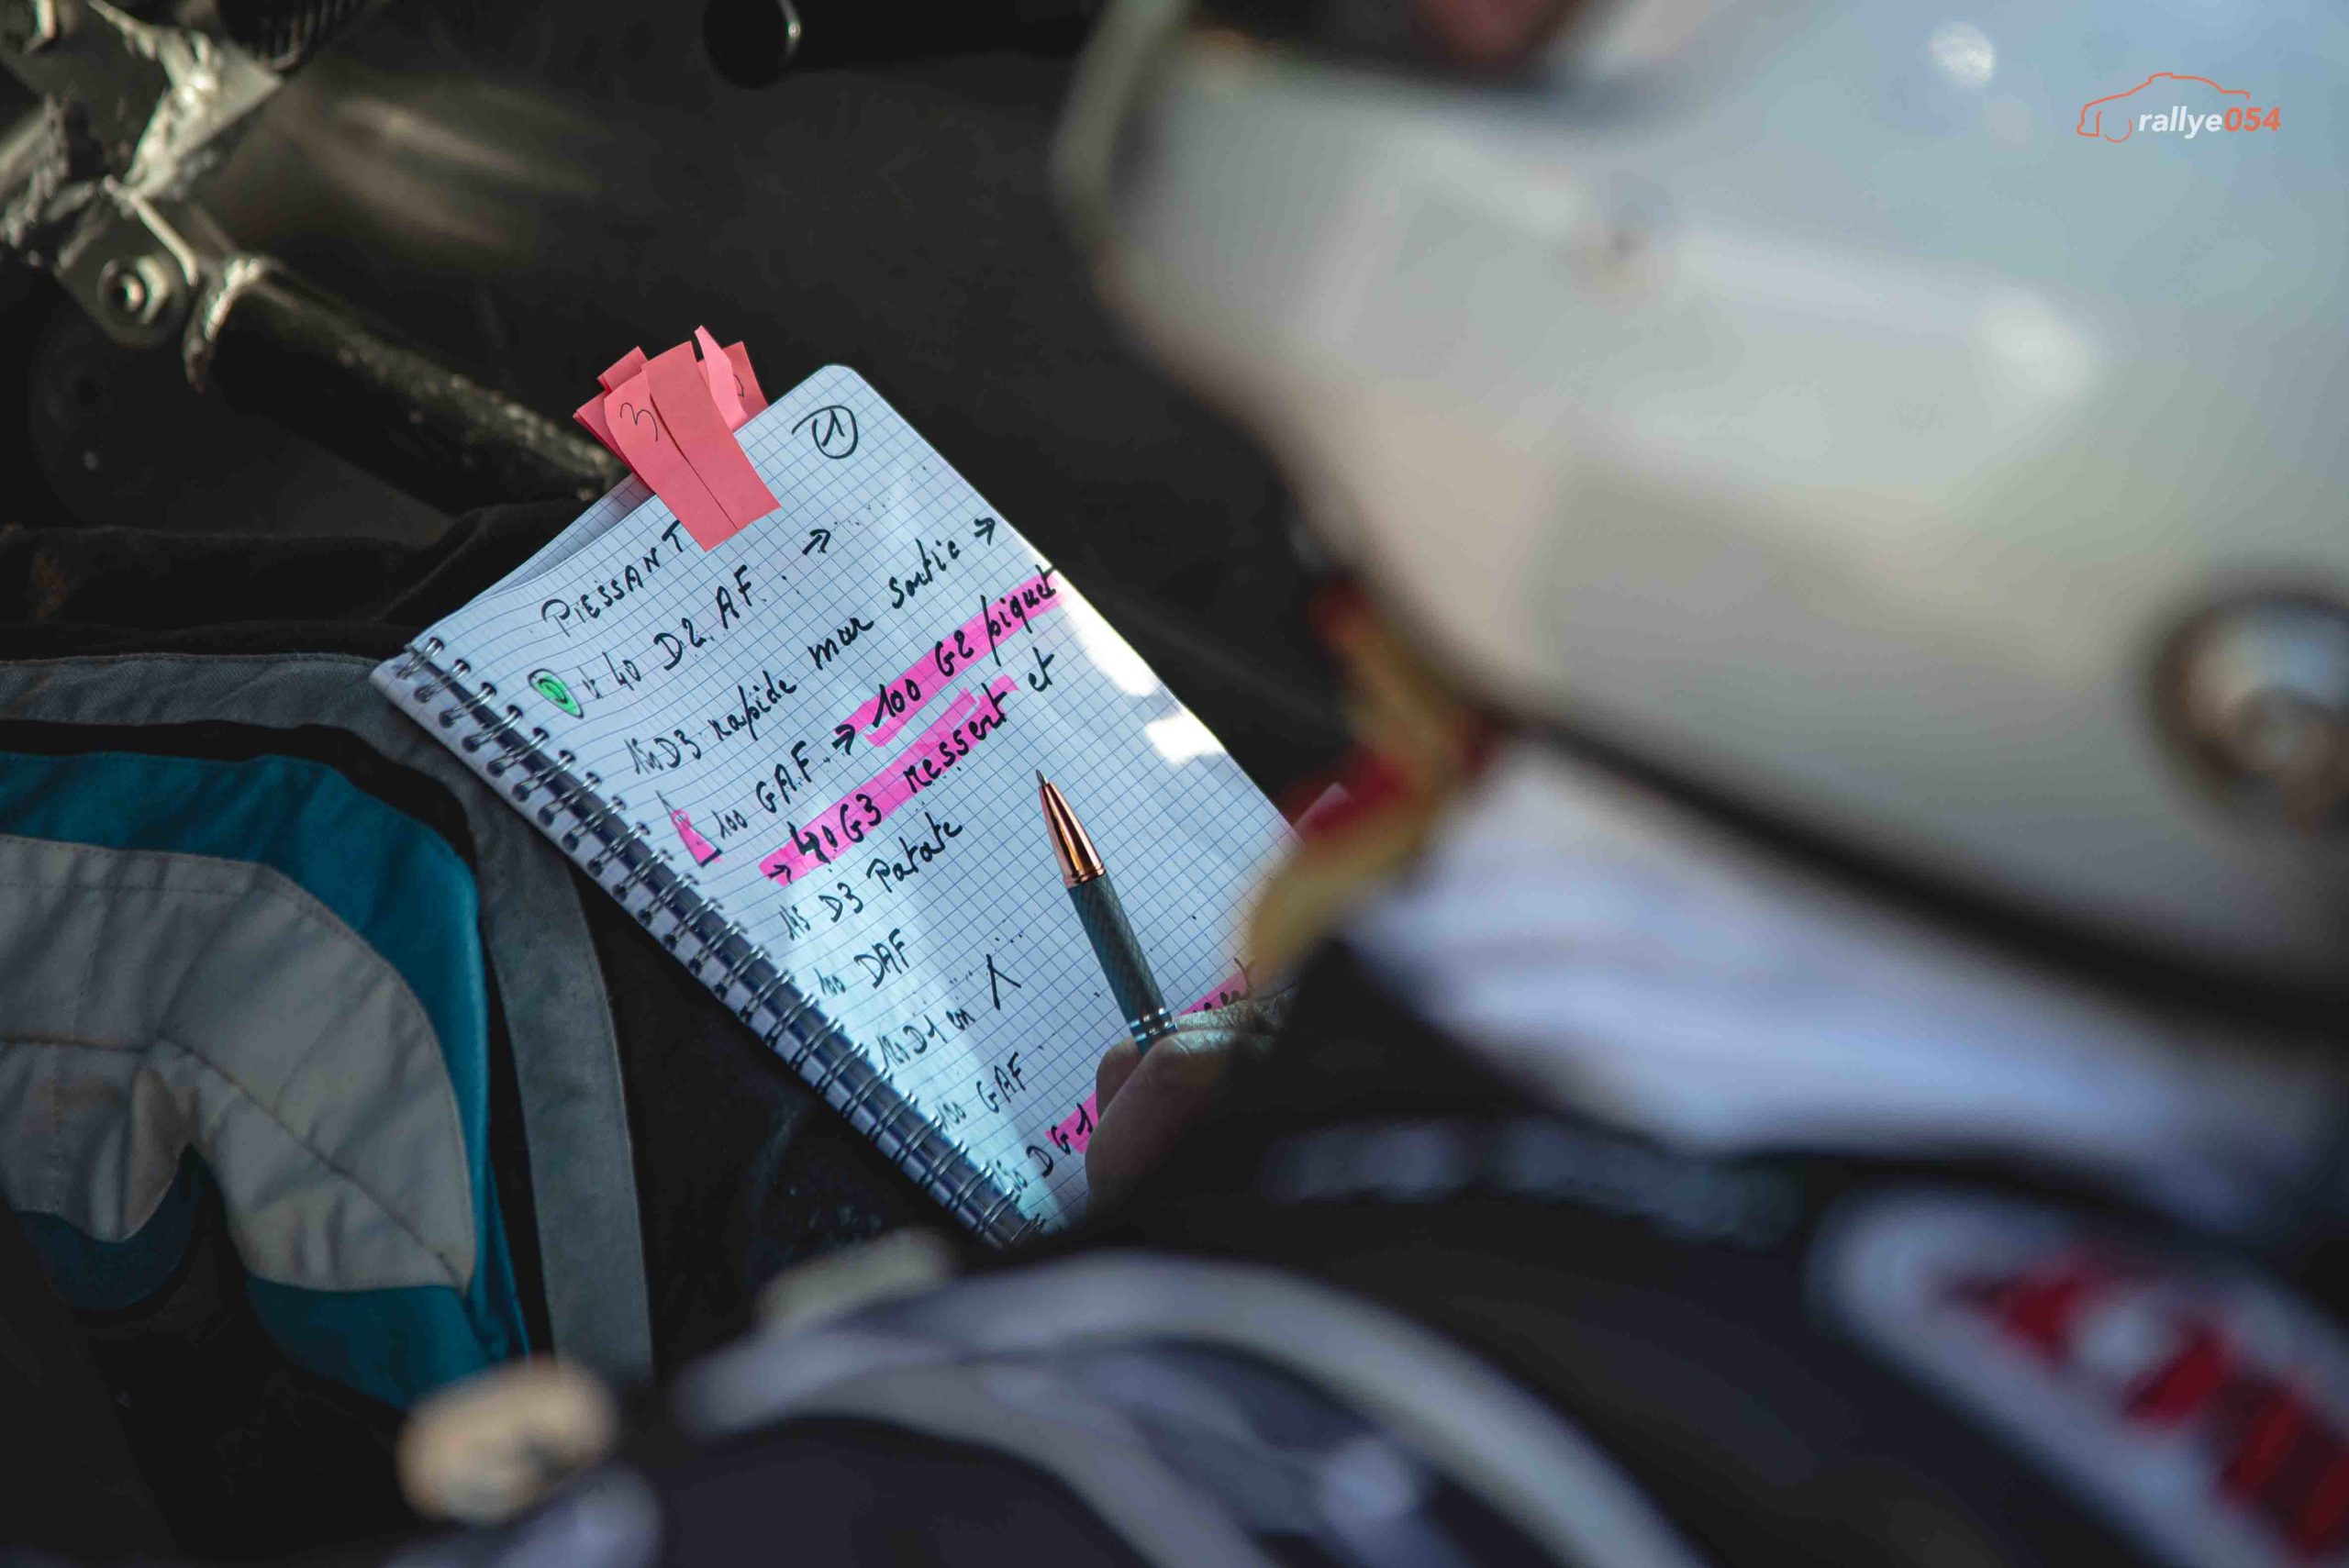 rallye054
3
1
PIESSANT
40 D2 AF. →
D3 rapide mur sortie →
100 GAF → 100 G2 piquet
→ 40 G3 ressert et
D3 Patate
100 DAF
D1 en
100 GAF
D G1